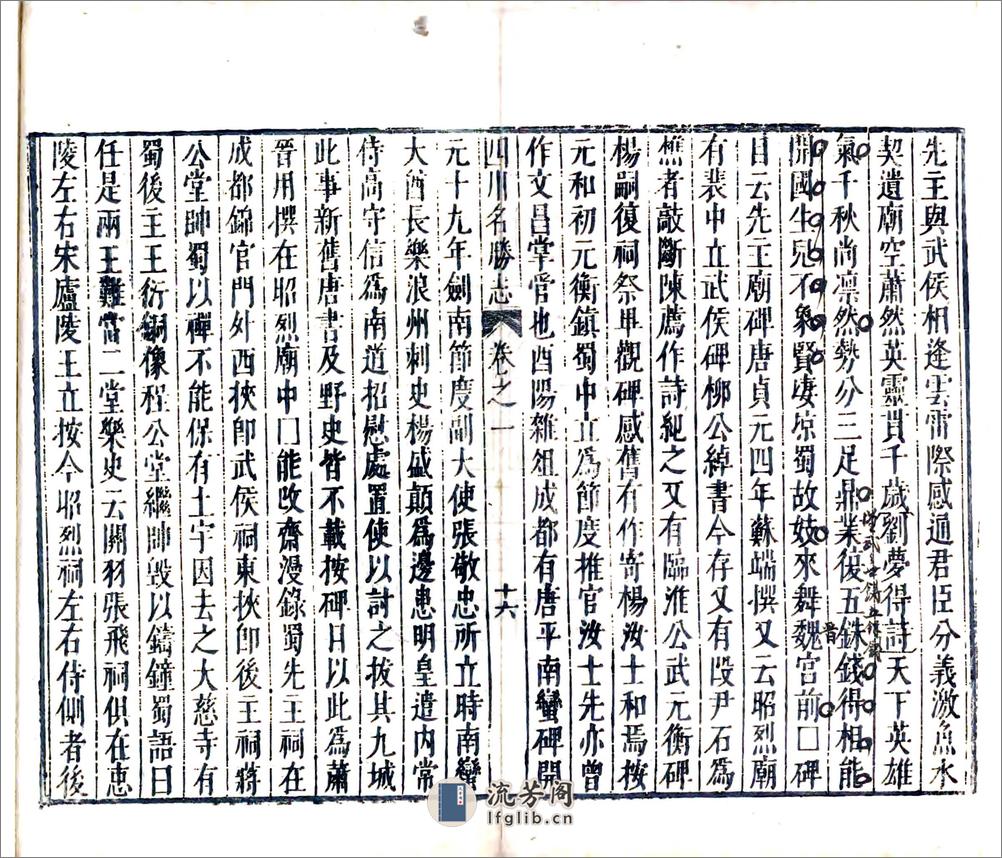 先主與武侯相逢雲雷際感通君臣分義激魚水
契遺廟空蕭然英靈貫千歲劉夢得詩天下英雄
氣千秋尚凛然勢分三足鼎業復五銖錢得相能
開國生兒不象賢凄凉蜀故妓來舞魏宮前□碑
目云先主廟碑唐貞元四年蘇端撰又云昭烈廟
有裴中立武侯碑柳公綽書今存又有段尹石爲
樵者敲斷陳薦作詩紀之又有臨淮公武元衡碑
楊嗣復祠祭畢觀碑感舊有作寄楊汝士和焉按
元和初元衡鎮蜀中立爲節度推官汝士先亦曾
作文昌掌管也酉陽雜俎成都有唐平南蠻碑開
四川名勝志
卷之一
十六
元十九年劍南節度副大使張敬忠所立時南蠻
大酋長樂浪州刺史楊盛顛爲邊患明皇遣内常
侍高守信爲南道招慰處置使以討之拔其九城
此事新舊唐書及野史皆不載按碑目以此爲蕭
晉用撰在昭烈廟中門能改齋漫錄蜀先主祠在
成都錦官門外西挾卽武侯祠東挾卽後主祠蔣
公堂帥蜀以禪不能保有土宇因去之大慈寺有
蜀後主王衍銅像程公堂繼帥毀以鑄鐘蜀語曰
任是兩王難當二堂樂史云關羽張飛祠俱在惠
陵左右宋廬陵王立按今昭烈祠左右侍側者後
晋
流芳阁
lfglib.cn